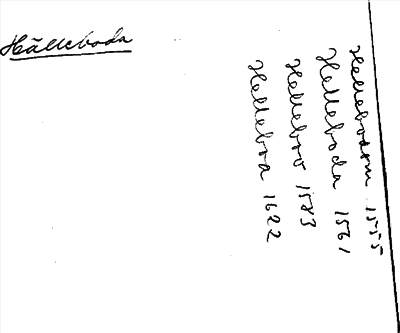 Hälleboda
Hellebodom 1555
Helleboda 1561
Hellebov 1583
Helleboa 1622